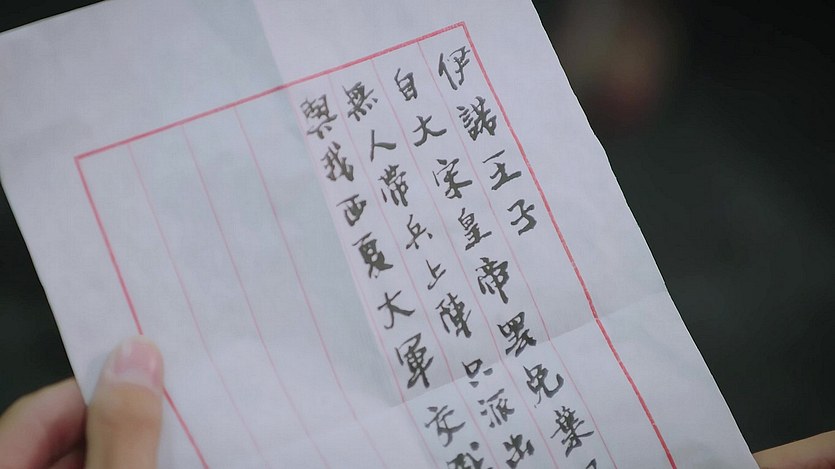 伊諾王子
自大宋皇帝罷免葉
無人帶兵上陣只派出
與我西夏大軍交戰